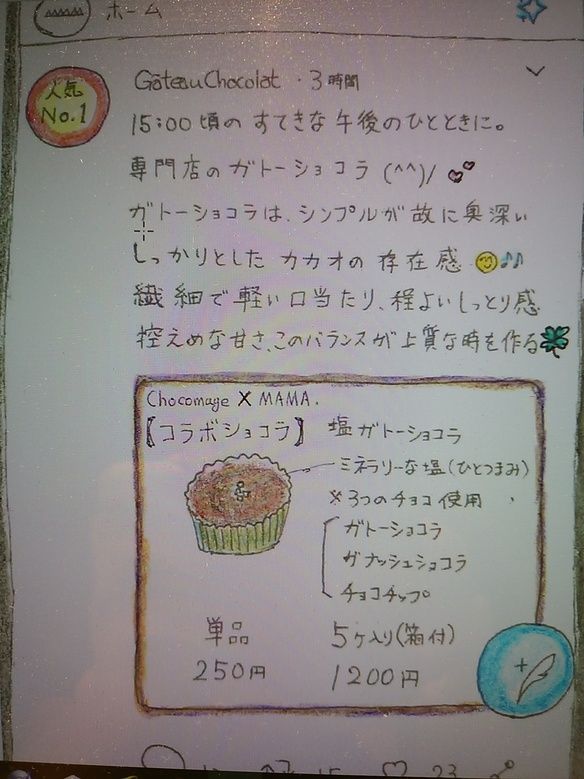 ホーム
人気
No.1
GâteauChocolat ・3時間
15:00頃の すてきな 午後のひとときに。
専門店のガトーショコラ (^^)/
ガトーショコラは、シンプルが故に奥深い
しっかりとした カカオの 存在感
繊細で軽い口当たり、程よいしっとり感
控えめな甘さ、このバランスが上質な時を作る
Chocomage X MAMA.
【コラボショコラ】 塩ガトーショコラ
ミネラリーな塩(ひとつまみ)
※3つのチョコ使用
ガトーショコラ
ガナッシュショコラ
チョコチップ
単品 5ヶ入り(箱付)
250円 1200円
23